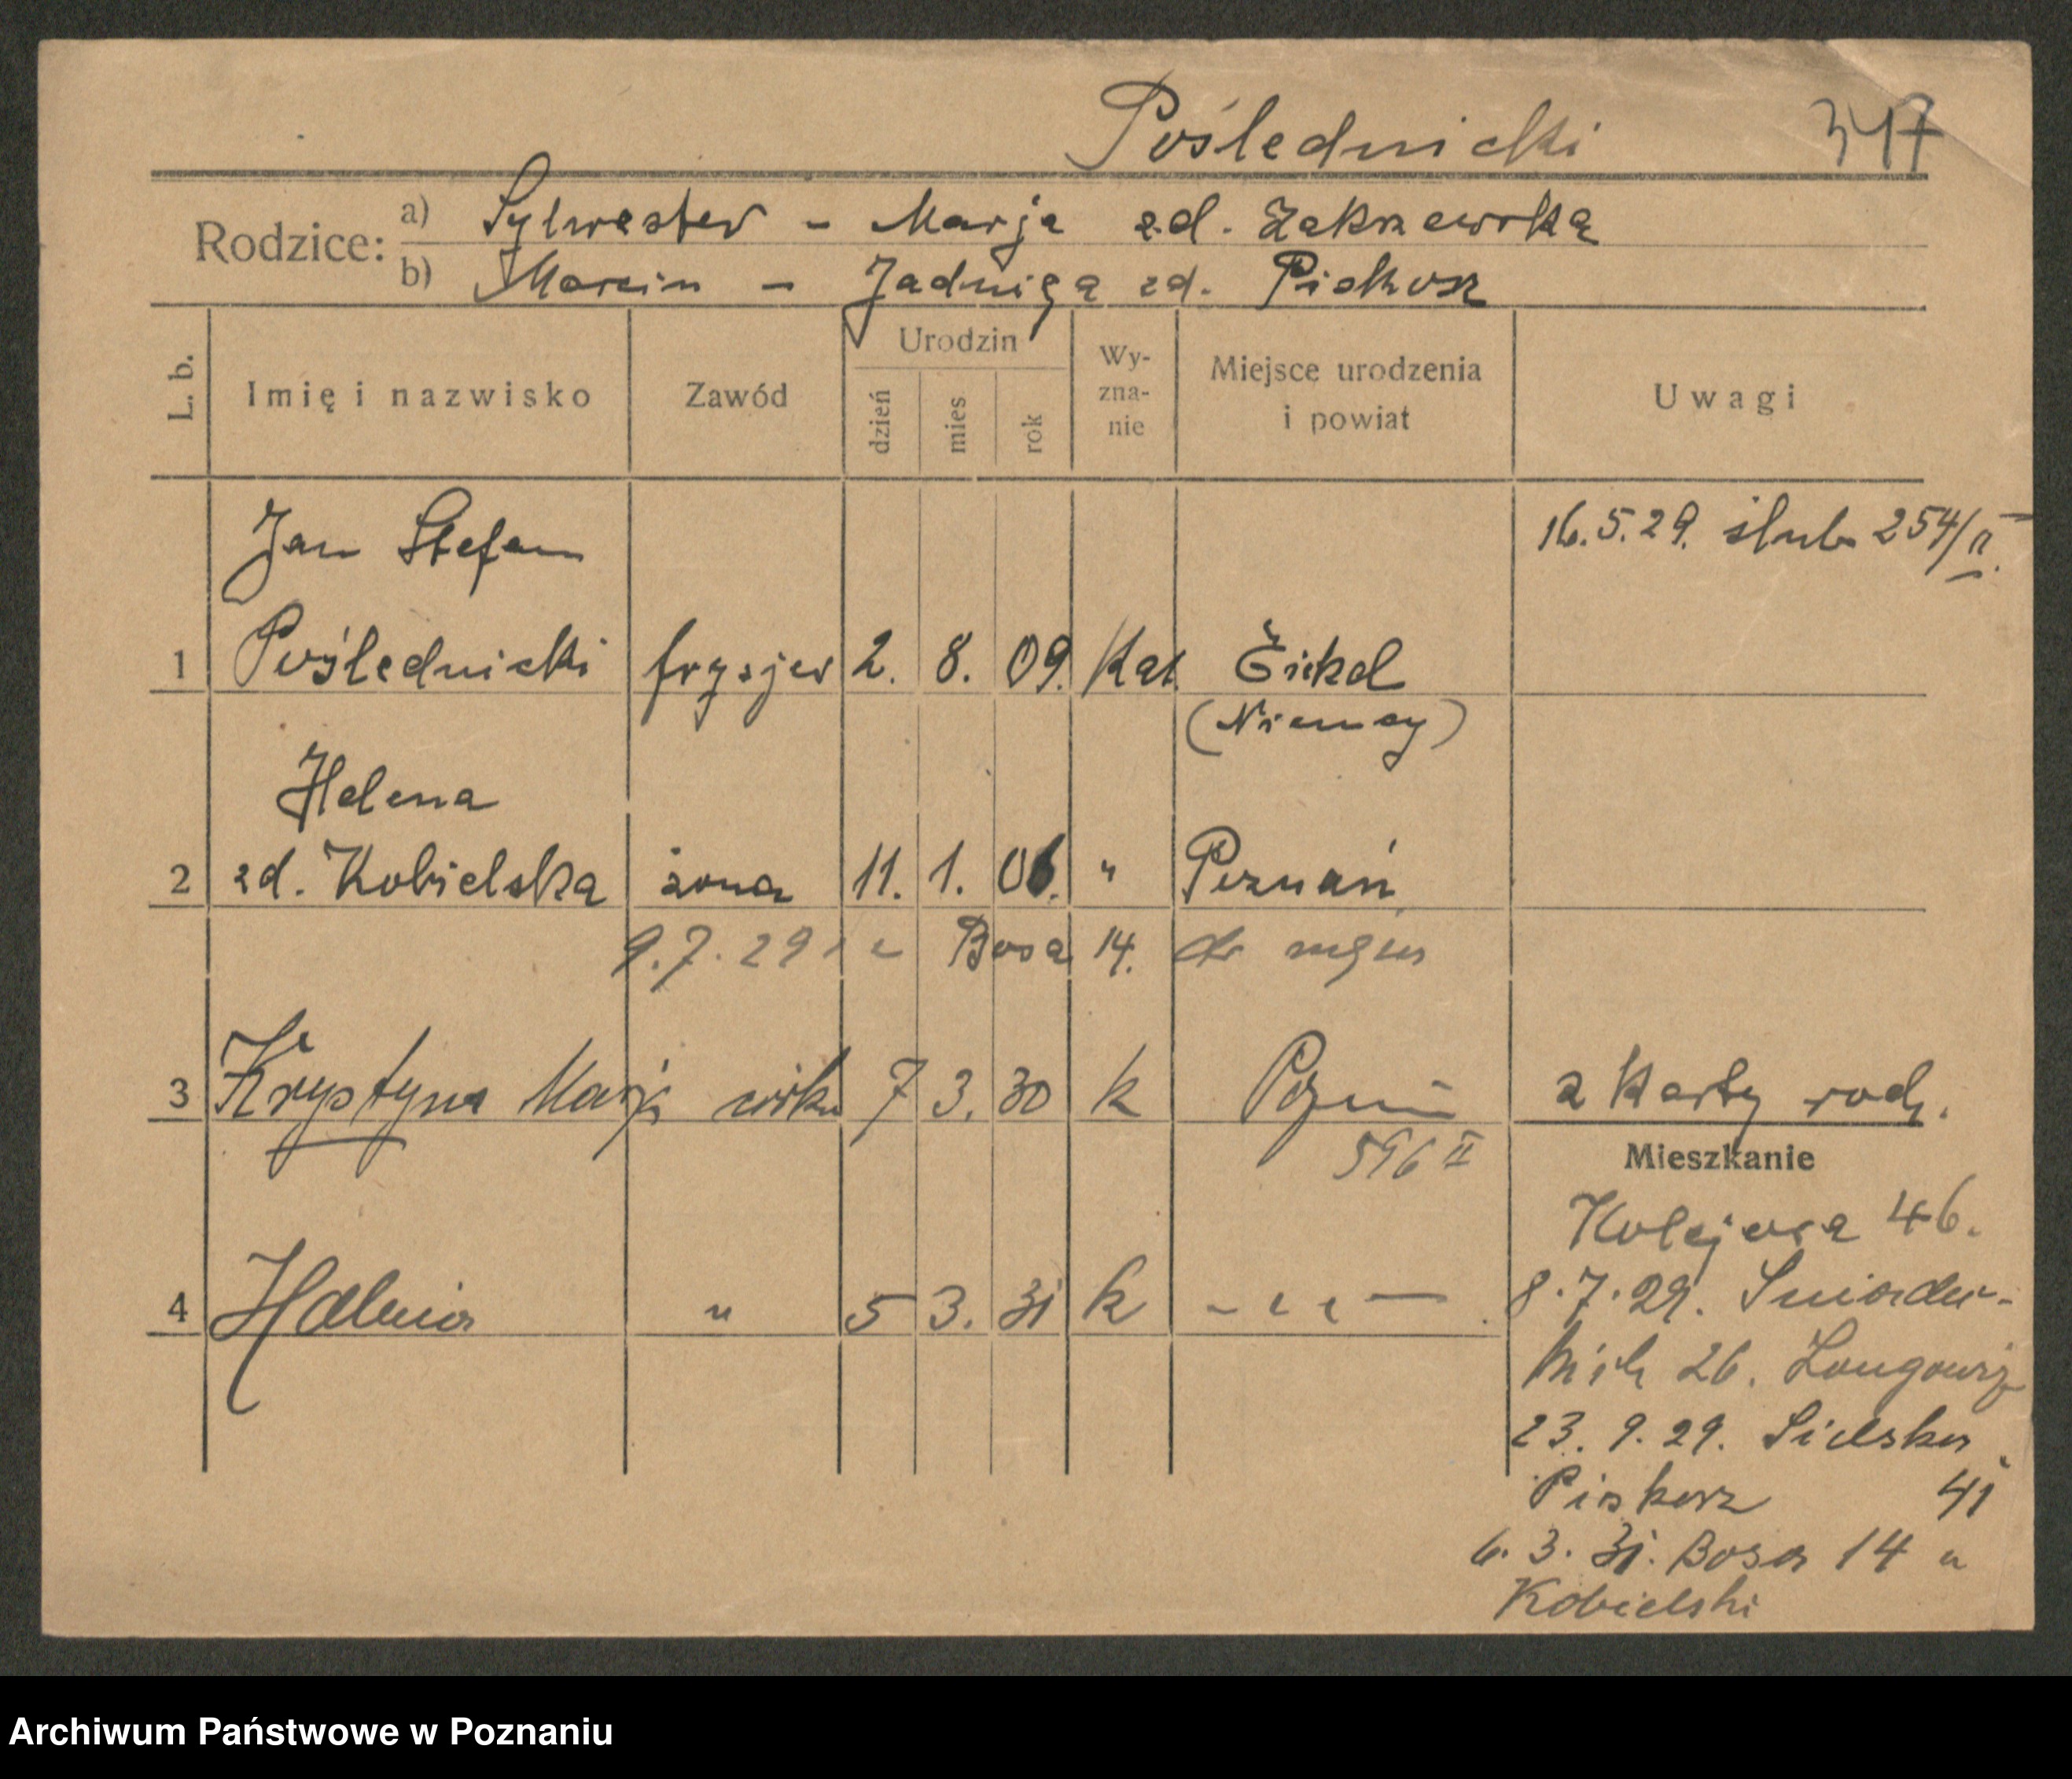 Pośrednicki 347
Rodzice: a) Sylwester - Marja zd. Zakrzewska
b) Marcin - Jadwiga zd. Piekosz
L. b. Imię i nazwisko Zawód Urodzin dzień mies rok Wy-zna-nie Miejsce urodzenia i powiat Uwagi
Jan Stefan 16.5.29. ślub 254/II.
1 Poślednicki fryzjer 2. 8. 09. Kat. Eickel
(Niemcy)
Helena
2 zd. Kobielska żona 11. 1. 06. " Poznań
9.7.29 Bosa 14.
3 Krystyna Marja córka 7 3. 30 k Poznań z Karty rodz.
596 II
Mieszkanie
Kolejowa 46.
4 Halina " 5 3. 31 k - " " - 8.7.29. Śniadec-
kich 26.
23. 9. 29. Sielska
Piskorz 41
6. 3. 31. Bosa 14 u
Kobielski
Archiwum Państwowe w Poznaniu